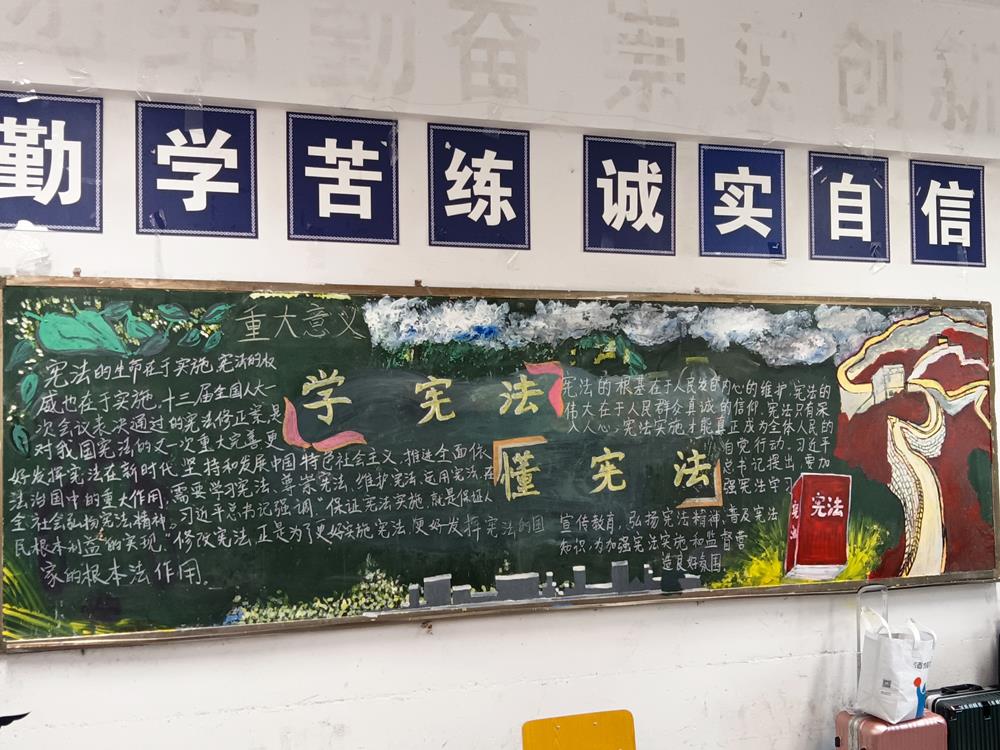 勤奋 崇实 创新
勤学苦练 诚实自信
重大意义
宪法的生命在于实施,宪法的权
威也在于实施。十三届全国人大一
次会议表决通过的宪法修正案,是
对我国宪法的又一次重大完善,更
好发挥宪法在新时代坚持和发展中国特色社会主义、推进全面依
法治国中的重大作用,需要学习宪法、尊崇宪法、维护宪法、运用宪法,在
全社会弘扬宪法精神。习近平总书记强调:保证宪法实施,就是保证人
民根本利益的实现。"修改宪法,正是为了更好实施宪法,更好发挥宪法的国
家的根本法作用。
学宪法
懂宪法
宪法的根基在于人民发自内心的维护,宪法的
伟大在于人民群众真诚的信仰,宪法只有深
入人心,宪法实施才能真正成为全体人民的
自觉行动,习近平
总书记提出,要加
强宪法学习
宣传教育,弘扬宪法精神、普及宪法
知识,为加强宪法实施和监督营
造良好氛围。
宪法